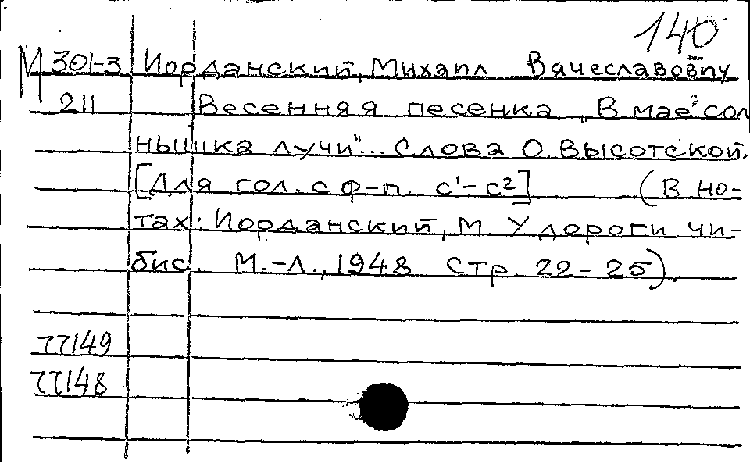 140
М 301-3 Иорданский, Михаил Вячеславович
211 Весенняя песенка „В мае сол
нышка лучи"... Слова О. Высотской.
[Для гол. с ф-п. c¹-c²] (В но-
тах: Иорданский, М. У дороги чи-
бис. М.-Л., 1948 Стр. 22-25).
77149
77148